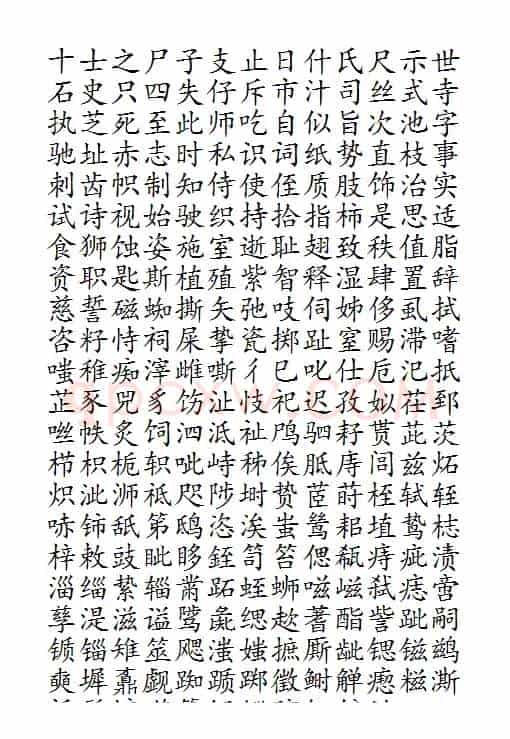 十士之尸子支止日什氏尺示世
石史只四失仔斥市汁司丝式寺
执芝死至此师吃自似旨次池字
驰址赤志时私识词纸势直枝事
刺齿帜制知侍使侄质肢饰治实
试诗视始驶织持拾指柿是思适
食狮蚀姿施室逝耻翅致秩值脂
资职匙斯植殖紫智释湿肆置辞
慈誓磁蜘撕矢弛吱伺姊侈虱拭
咨籽恃祠屎挚瓷掷趾窒赐滞嗜
嗤稚痴滓雌嘶彳巳叱仕卮汜抵
芷豕兕豸饬沚忮祀迟孜姒茬郅
咝帙炙饲泗泜祉鸤驷耔贳茈茨
栉枳栀轵呲峙秭俟胝庤闾兹炻
炽泚浉祗咫陟埘贽茝莳桎轼轾
哧铈舐笫鸱恣涘蚩鸶耜埴鸷梽
梓敕豉眦眵铚笥笞偲瓻痔疵渍
淄缁絷辎黹跖蛭蛳嗞嵫弑痣啻
孳湜滋谥鹭彘缌趑蓍酯訾跐嗣
锧锱雉筮飔滍媸摭厮龇锶镃鹚
奭墀鼒觑踟踬踯徵鲥觯瘛糍澌